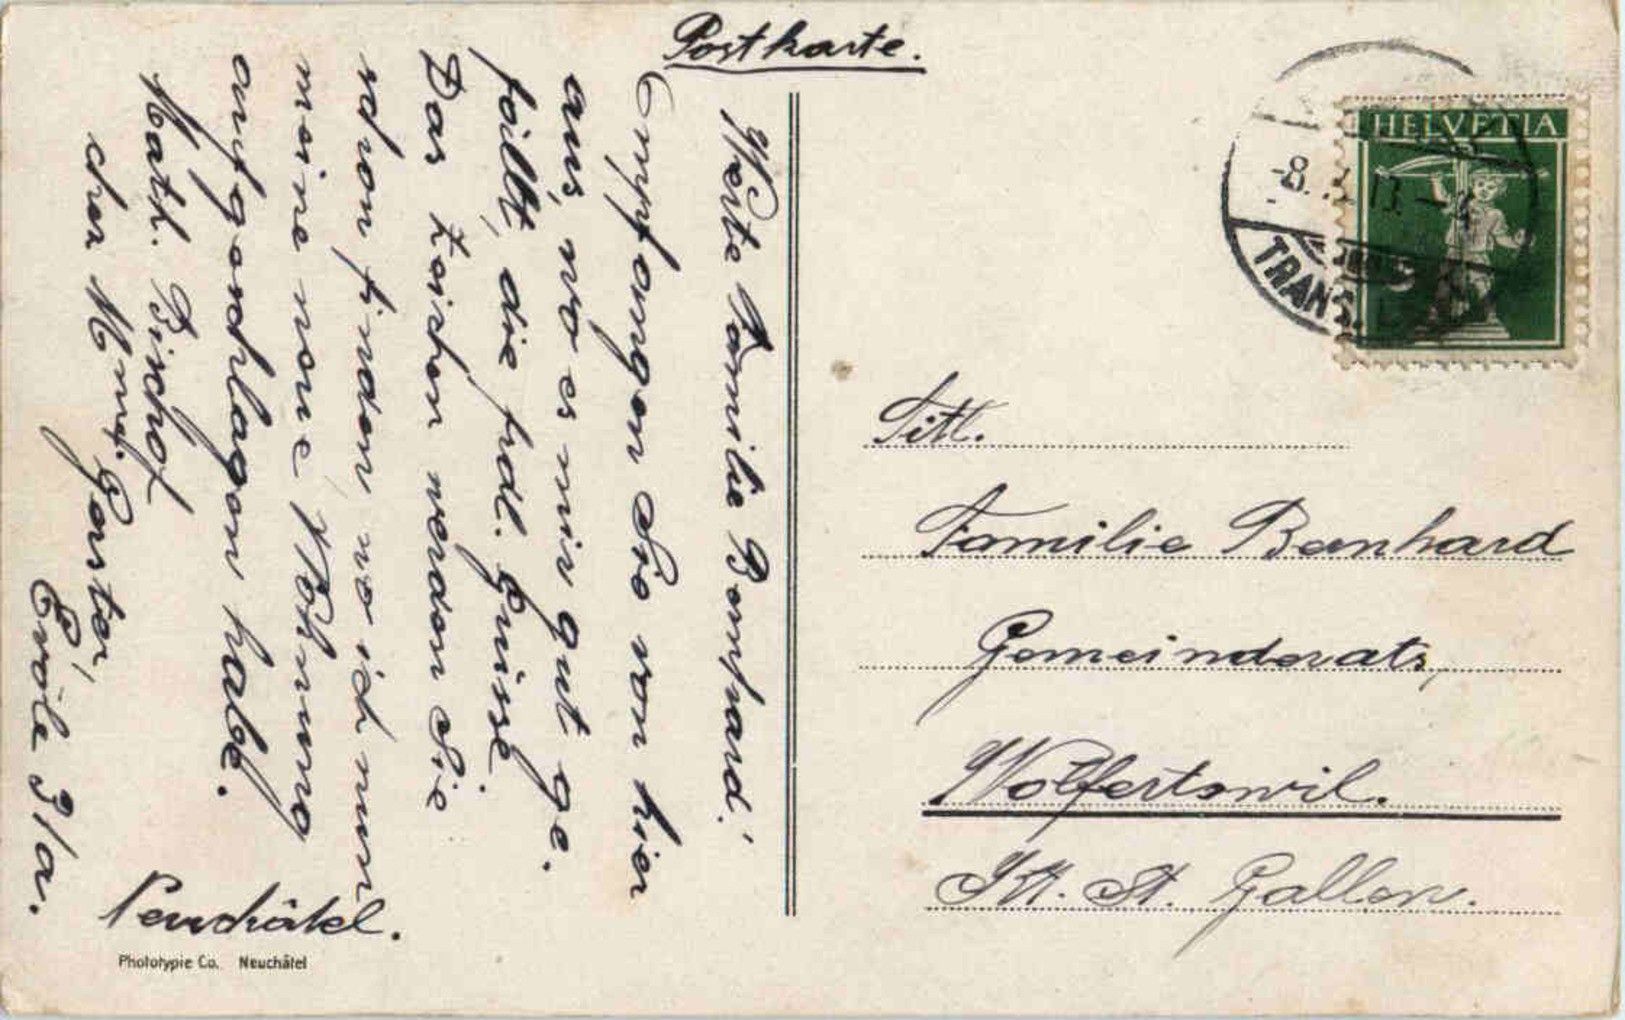 Postkarte.
Werte Familie Bernhard!
Empfangen Sie von hier
aus, wo es mir gut ge-
fällt, die frdl. Grüsse.
Das Zeichen werden Sie
schon finden wo ich nun
meine neue Wohnung
aufgeschlagen habe.
Math. Bischof
chez Mme. Gorter,
Evole 31/a.
Neuchâtel.
Phototypie Co. Neuchâtel
HELVETIA
TRANS.
Titl.
Familie Bernhard
Gemeinderats,
Wolfertswil.
Kt. St. Gallen.